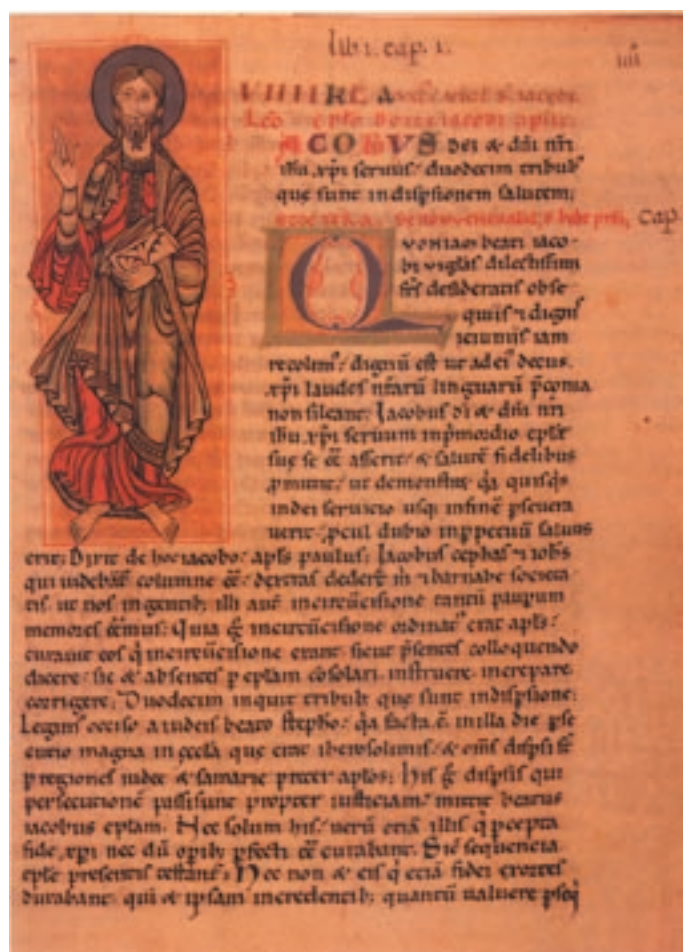 lib 1. cap. 1.
iiij
COBUS dei & dn̄i nr̄i
ihu xp̄i seruus duodecim tribub;
que sunt in dispsionem salutem;
Cap
Quoniam beati iaco
bi uigilias dilectissimi
fr̄s desiderans obse
quiis ⁊ dignis
ieiuniis iam
recolim; dignū est ut ad ei; decus.
xp̄i laudes nr̄arū linguarū p̄conia
non sileant; Iacobus di & dn̄i nr̄i
ihu xp̄i seruum in p̄mordio epl̄e
sue se eē asserit; & salutē fidelibus
ꝓmittit; ut demonstret q̄a quisq̄s
in dei seruicio usq; in finē pseuera
uerit, ꝓcul dubio in ppetuū saluus
erit; Dixit de hoc iacobo apl̄s paulus; Iacobus cephas ⁊ ioh̄s
qui uidebant columne eē; dextras dedert̄ m̄ ⁊ barnabe societa
tis. ut nos in gentib; illi aut̄ in circūcisione tantū paupum
memores eēmus; Quia g̊ in circūcisione ordinat; erat apl̄s;
curauit eos q̄ in circūcisione erant. sicut p̄sentes colloquendo
docere; sic & absentes p eplam cōsolari. instruere. increpare.
corrigere; Duodecim inquit tribub; que sunt in dispsione;
Legim; occiso a iudeis beato stepho; q̄a facta ē in illa die pse
cutio magna in eccl̄a que erat iherosolimis; & om̄s dispsi st̄
p regiones iudee & samarie preter apl̄os; His g̊ dispsis qui
persecutionē passi sunt propter iusticiam; mittit beatus
iacobus eplam. Nec solum his; uerū etiā illis q̄ pcepta
fide xp̄i nec dū opib; pfecti eē curabant. Sic sequencia
epl̄e presentis testant̄; Nec non & eis q̄ eciā fidei exortes
durabant. qui & ipsam in credentib; quantū ualuere pseq̄